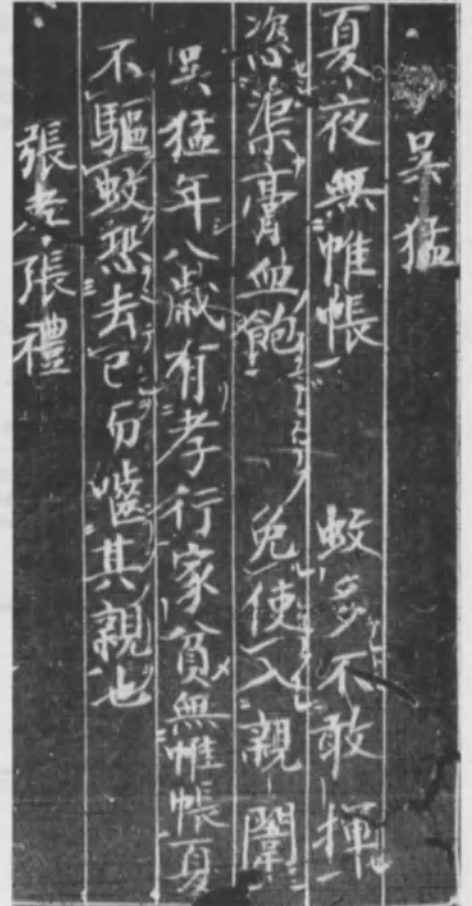 吳猛
夏夜無帷帳 蚊多不敢揮
恣渠膏血飽 免使入親闈
吳猛年八歳有孝行家貧無帷帳夏
不驅蚊恐去己而噬其親也
張孝張禮